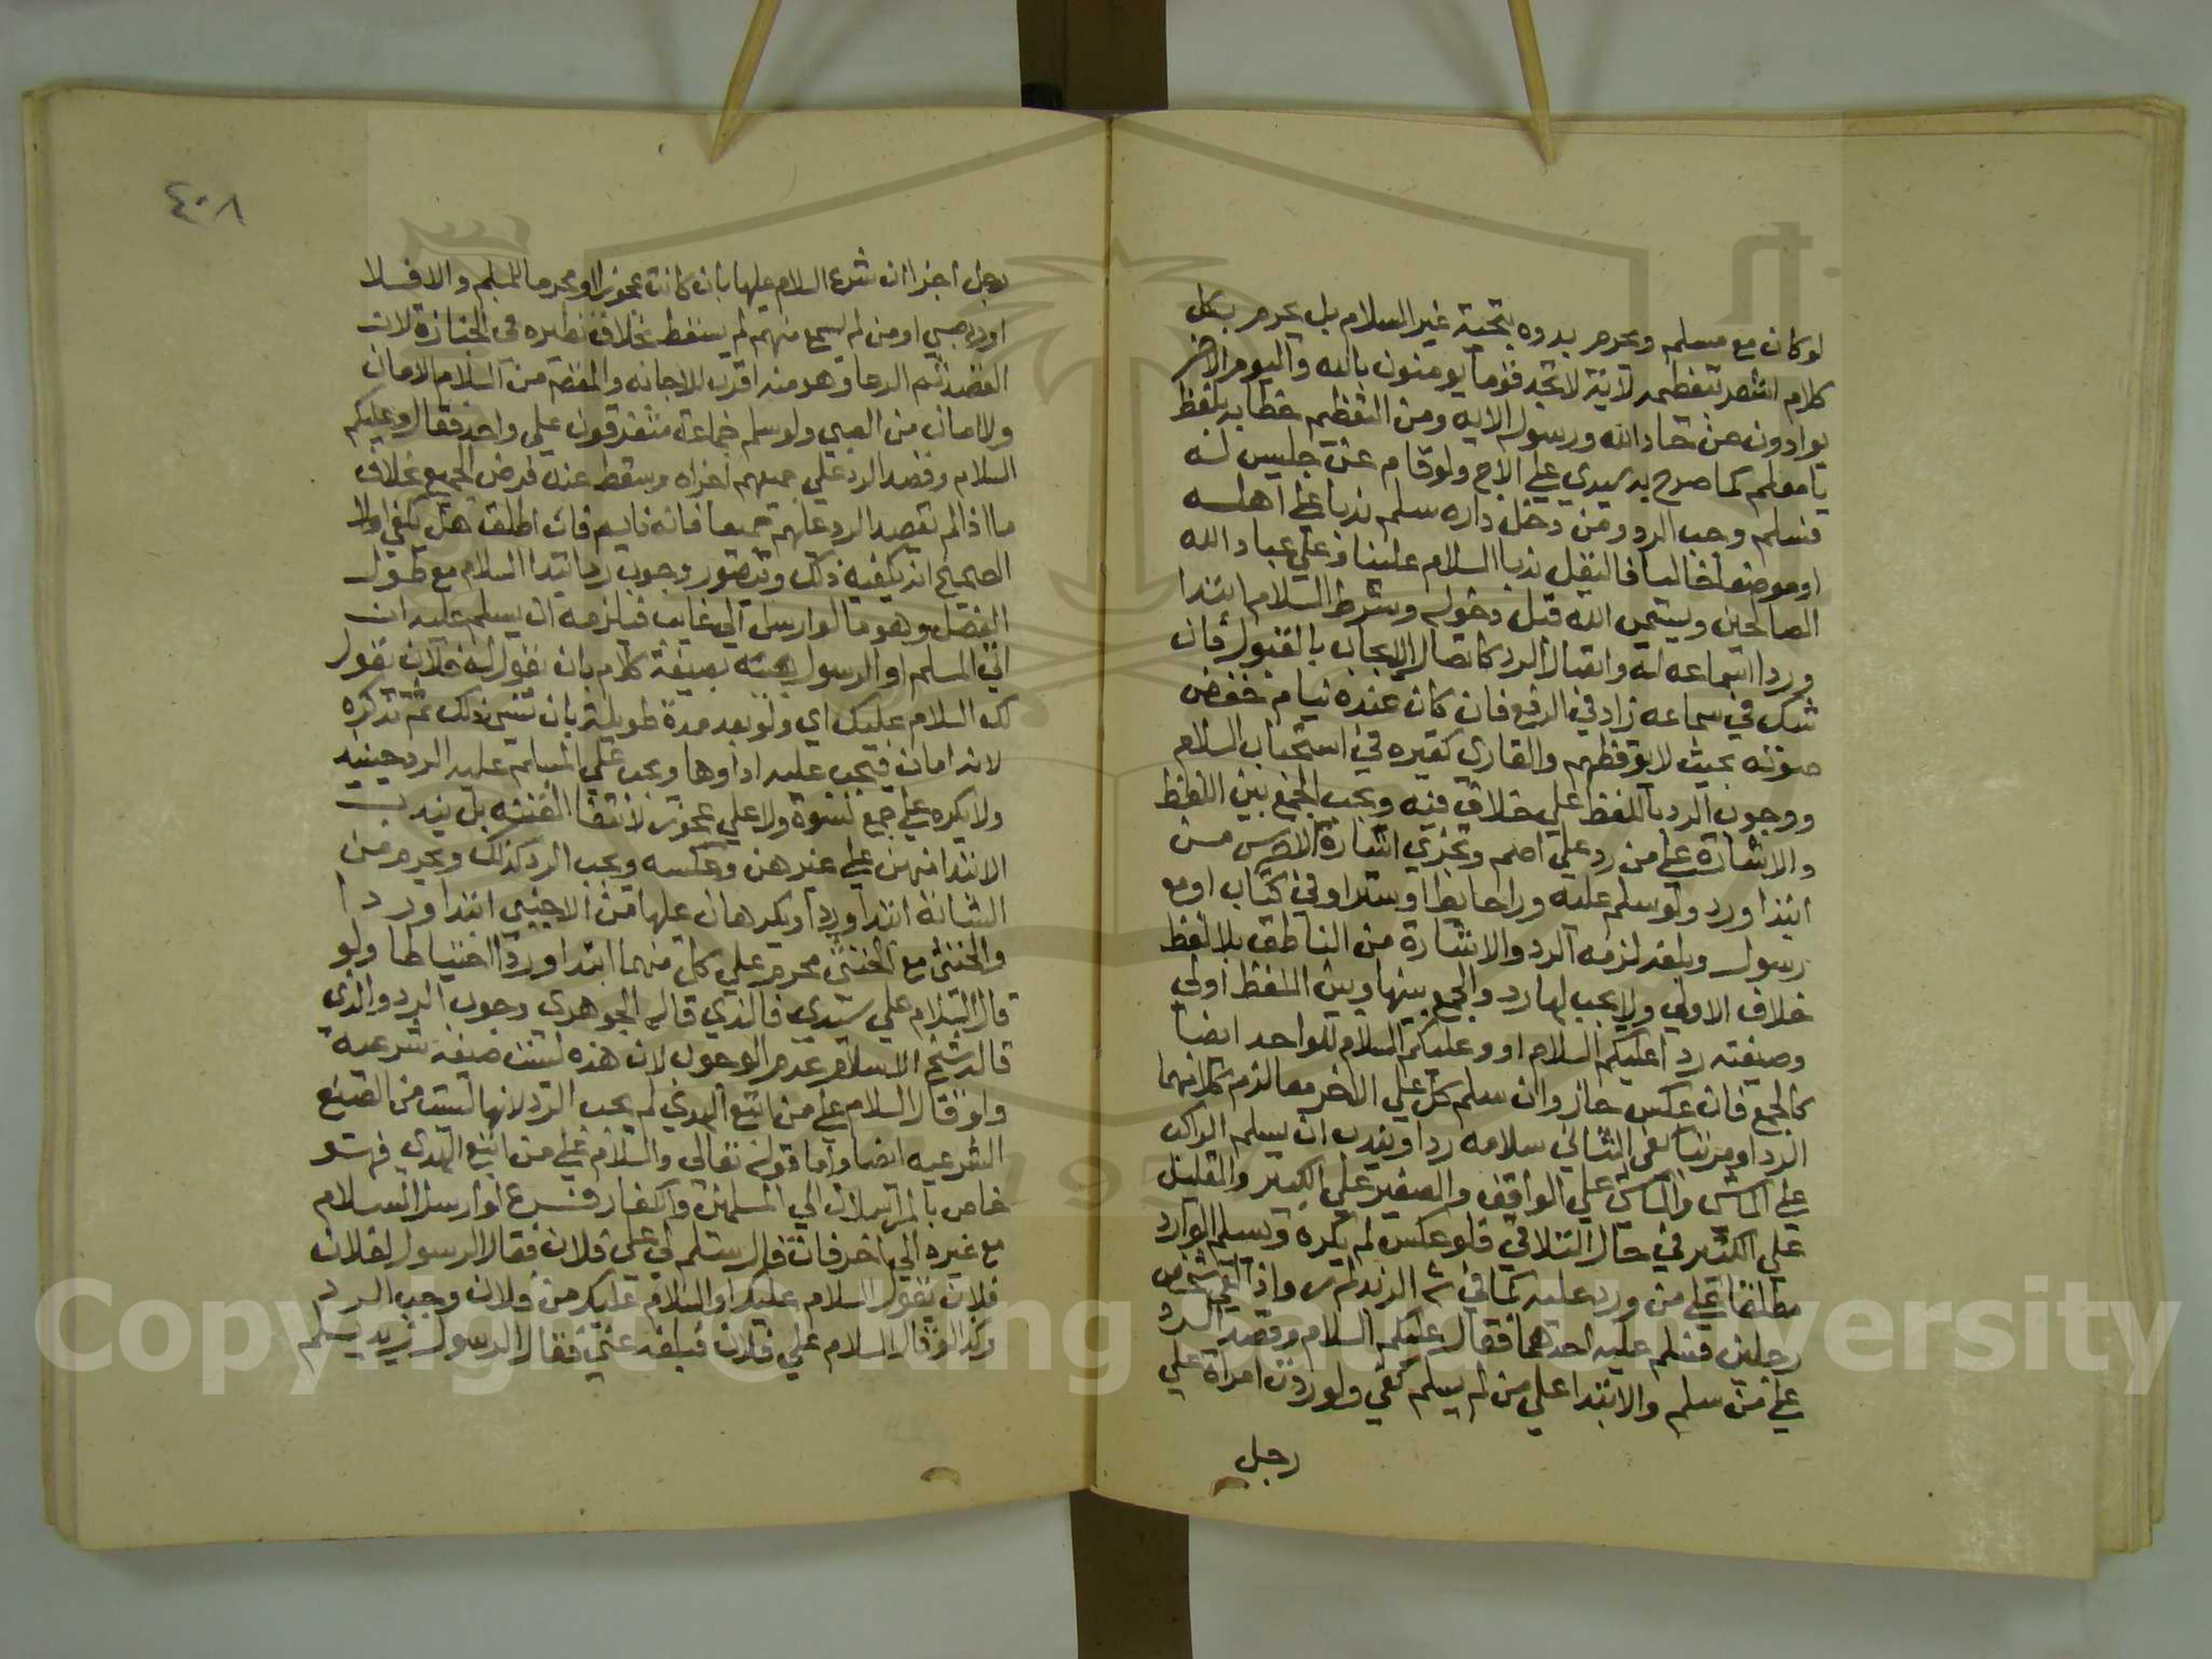 لو كان مع مسلم ويحرم بدوه بتحية غير السلام بل يحرم بكل
كلام اشعر بتعظيمه لاية لا تجد قوما يومنون بالله واليوم الاخر
يوادون من حاد الله ورسوله الايه ومن التعظيم خطابه بلفظ
يا معلم كما صرح به سيدي علي الاج ولو قام عن جليس له
فسلم وجب الرد ومن دخل داره سلم ندبا علي اهله
او موضعا خاليا فاليقل ندبا السلام علينا وعلي عباد الله
الصالحين ويسمي الله قبل دخوله وشرط السلام ابتدا
وردا اسماعه له واتصال الرد كاتصال الايجاب بالقبول فان
شك في سماعه زاد في الرفع فان كان عنده نيام خفض
صوته بحيث لا يوقظهم والقاري كغيره في استحباب السلام
ووجوب الرد باللفظ علي خلاف فيه ويجب الجمع بين اللفظ
والاشارة علي من رد علي اصم وتجزي اشارة الاخرس من
ابتدا ورد ولو سلم عليه ورا حايط او ستر او في كتاب او مع
رسول وبلغه لزمه الرد والاشارة من الناطق بلا لفظ
خلاف الاولي ولا يجب لها رد والجمع بينها وبين اللفظ اولي
وصيغته ردا عليكم السلام او وعليكم السلام للواحد ايضا
كالجمع فان عكس جاز وان سلم كل علي الاخر معا لزم كلا منهما
الرد او مرتبا كفي الثاني سلامه ردا ويندب ان يسلم الراكب
علي الماشي والماشي علي الواقف والصغير علي الكبير والقليل
علي الكثير في حال التلاقي فلو عكس لم يكره ويسلم الوارد
مطلقا علي من ورد عليه كما في واذا لقي شخص
رجلين فسلم عليه احدهما فقال عليكم السلام وقصد الرد
علي من سلم والابتدا علي من لم يسلم كفي ولو ردت امراة علي
رجل
٤٠٨
رجل اجزا ان شرع السلام عليها بان كانت عجوزا او محرما للمسلم والا فلا
او رد صبي او من لم يسمع منهم لم يسقط بخلاف نظيره في الجنازة لان
القصد ثم الدعا وهو منه اقرب للاجابه والقصد من السلام الامان
ولا امان من الصبي ولو سلم جماعة متفرقون علي واحد فقال وعليكم
السلام وقصد الرد علي جميعهم اجزاه وسقط عنه فرض الجميع بخلاف
ما اذا لم يقصد الرد عليهم جميعا فانه فان اطلق هل يكفي اولا
الصحيح انه يكفيه ذلك ويتصور وجوب رد ابتدا السلام مع طول
الفصل وهو ما لو ارسل الي غايب فيلزمه ان يسلم عليه ان
اتي المسلم او الرسول بصيغة كلام بان يقول له فلان يقول
لك السلام عليك اي ولو بعد مدة طويلة بان نسي ذلك ثم تذكره
لانه امانة فيجب عليه اداوها ويجب علي المسلم عليه الرد حينيذ
ولا يكره علي جمع نسوة ولا علي عجوز لانتفا الفتنه بل يندب
الابتدا منهن علي غيرهن وعكسه ويجب الرد كذلك ويحرم من
الشابة ابتدا وردا ويكرهان عليها من الاجنبي ابتدا وردا
والخنثي مع الخنثي محرم علي كل منهما ابتدا وردا احتياطا ولو
قال السلام علي سيدي فالذي قاله الجوهري وجوب الرد والذي
قاله شيخ الاسلام عدم الوجوب لان هذه ليست صيغة شرعية
ولو قال السلام علي من اتبع الهدي لم يجب الرد لانها ليست من الصيغ
الشرعيه ايضا واما قوله تعالي والسلام علي من اتبع الهدي فهو
خاص بالمراسلات الي المسلمين والكفار فرع لو ارسل السلام
مع غيره الي اخر فان قال سلم لي علي فلان فقال الرسول لفلان
فلان يقول السلام عليك او السلام عليك من فلان وجب الرد
وكذا لو قال السلام علي فلان فبلغه عني فقال الرسول زيد يسلم
Copyright © King Saud University